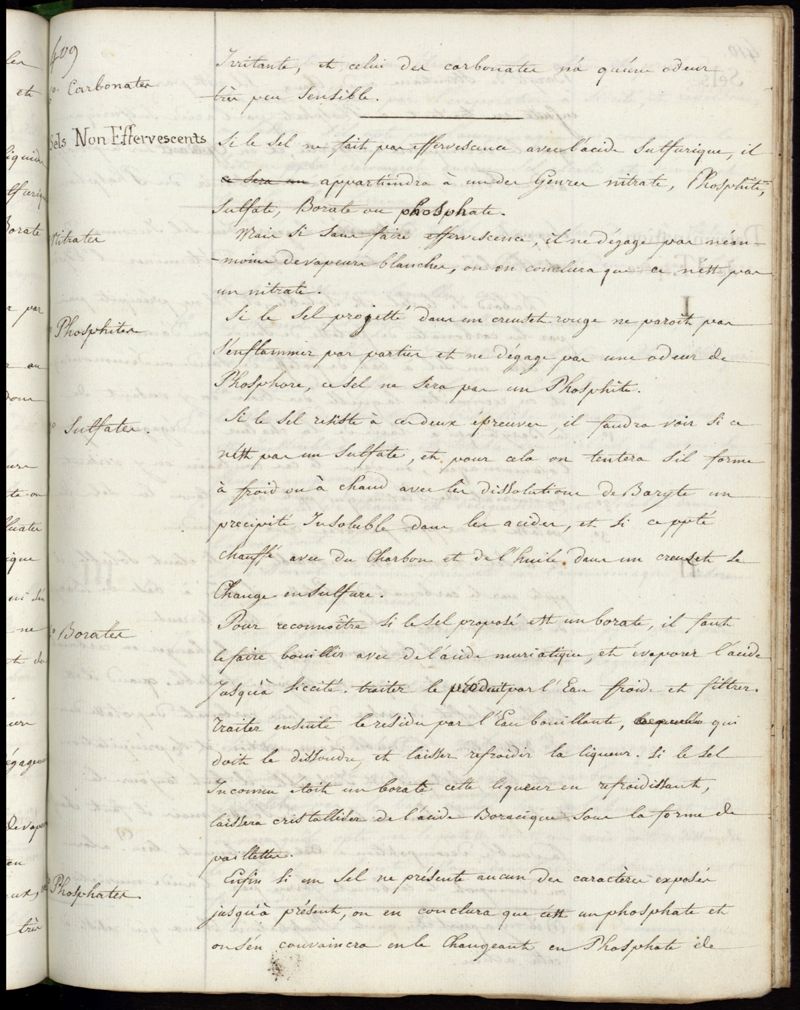 409
Irritante, et celui des carbonates n'a qu'une odeur
Carbonates
très peu sensible.
Sels Non Effervescents
Si le Sel ne fait pas effervescence avec l'acide Sulfurique, il
ce sera un appartiendra à un des Genres nitrate, Phosphite,
Sulfate, Borate ou phosphate.
Nitrates
Mais si sans faire effervescence, il ne dégage pas néan-
-moins de vapeurs blanches, on en conclura que ce n'est pas
un nitrate.
Phosphites
Si le Sel projetté dans un creuset rouge ne paroît pas
s'enflammer par parties et ne dégage pas une odeur de
Phosphore, ce sel ne sera pas un Phosphite.
Sulfates.
Si le Sel resiste à ces deux épreuves, il faudra voir si ce
n'est pas un Sulfate, et pour cela on tentera s'il forme
à froid ou à chaud avec les dissolutions de Baryte un
precipité Insoluble dans les acides, et si ce ppté
chauffé avec du Charbon et de l'huile dans un creuset se
Change en sulfure.
Borates
Pour reconnoître si le Sel proposé est un borate, il faut
le faire bouillir avec de l'acide muriatique, et évaporer l'acide
Jusqu'à siccité. traiter le produit par l'Eau froide et filtrer.
Traiter ensuite le residu par l'Eau bouillante, qui
doit le dissoudre, et laisser refroidir la liqueur. Si le Sel
Inconnu étoit un borate cette liqueur en refroidissant,
laissera cristalliser de l'acide Boracique sous la forme de
paillettes.
Phosphates
Enfin si un Sel ne présente aucun des caractères exposés
jusqu'à présent, on en conclura que c'est un phosphate et
on s'en convaincra en le Changeant en Phosphate de